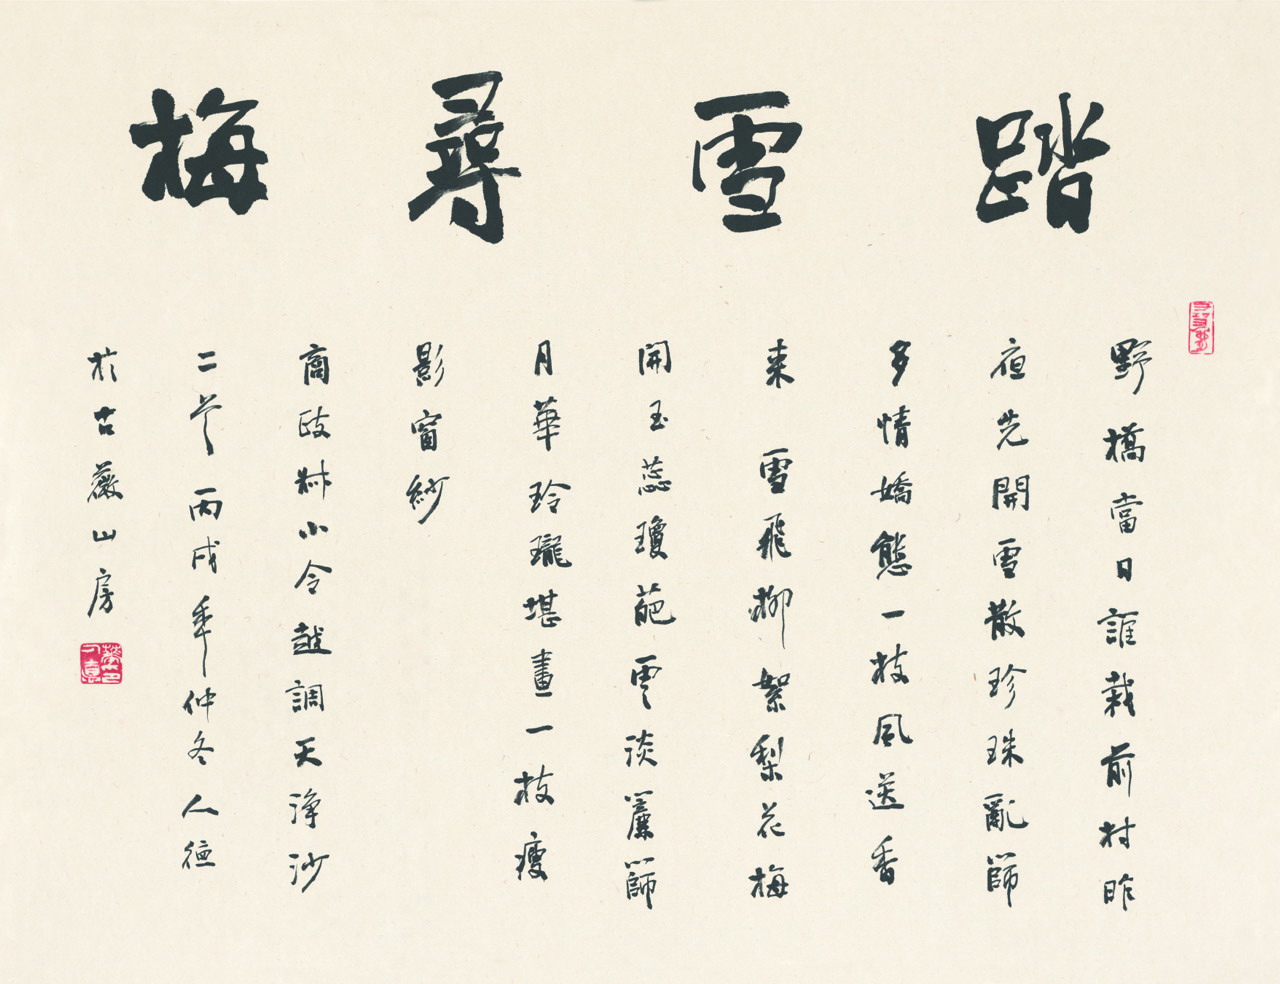 踏雪尋梅
野橋當日誰栽前村昨
夜先開雪散珍珠亂篩
多情嬌態一枝風送香
來 雪飛柳絮梨花梅
開玉蕊瓊葩雲淡簾篩
月華玲瓏堪畫一枝瘦
影窗紗
商政叔小令越調天淨沙
二首丙戌年仲冬人德
於古薇山房